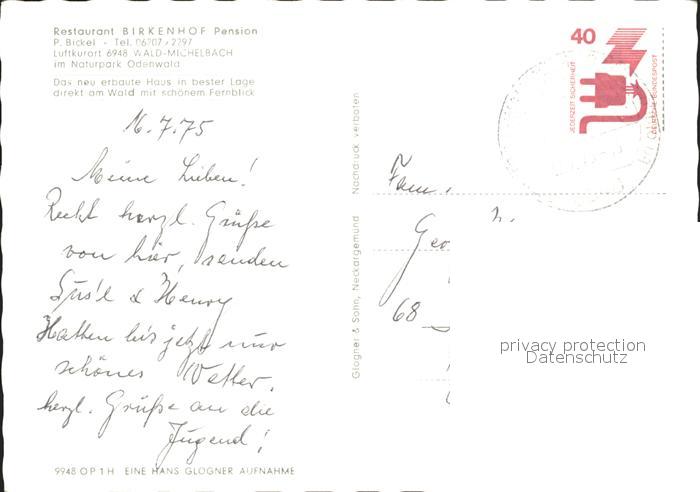 Restaurant BIRKENHOF Pension
P. Bickel - Tel. 06207 / 2297
Luftkurort 6948 WALD-MICHELBACH
im Naturpark Odenwald
Das neu erbaute Haus in bester Lage
direkt am Wald mit schönem Fernblick
16.7.75
Meine Lieben!
Recht herzl. Grüße
von hier, senden
Sus'l & Henry
Hatten bis jetzt nur
schönes Wetter.
herzl. Grüße an die
Jugend!
9948 OP 1 H EINE HANS GLOGNER AUFNAHME
Glogner & Sohn, Neckargemünd
Nachdruck verboten
40
JEDERZEIT SICHERHEIT
DEUTSCHE BUNDESPOST
Fam.
Geo
68
privacy protection
Datenschutz